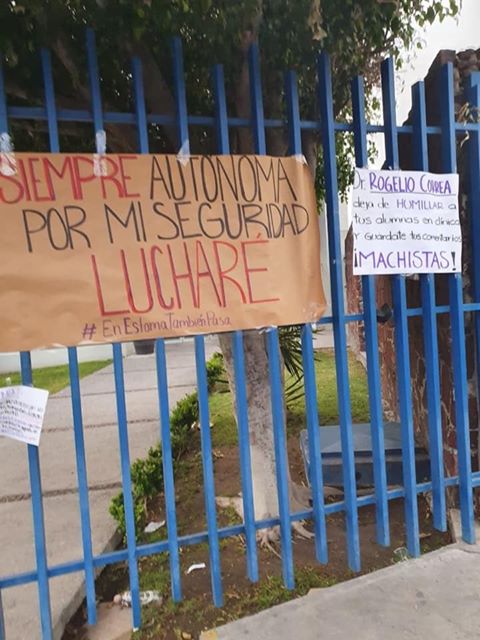 SIEMPRE AUTÓNOMA
POR MI SEGURIDAD
LUCHARÉ
# EnEstomaTambiénPasa
Dr. ROGELIO CORREA
deja de HUMILLAR a
tus alumnas en clínica
Y Guárdate tus comentarios
¡MACHISTAS!